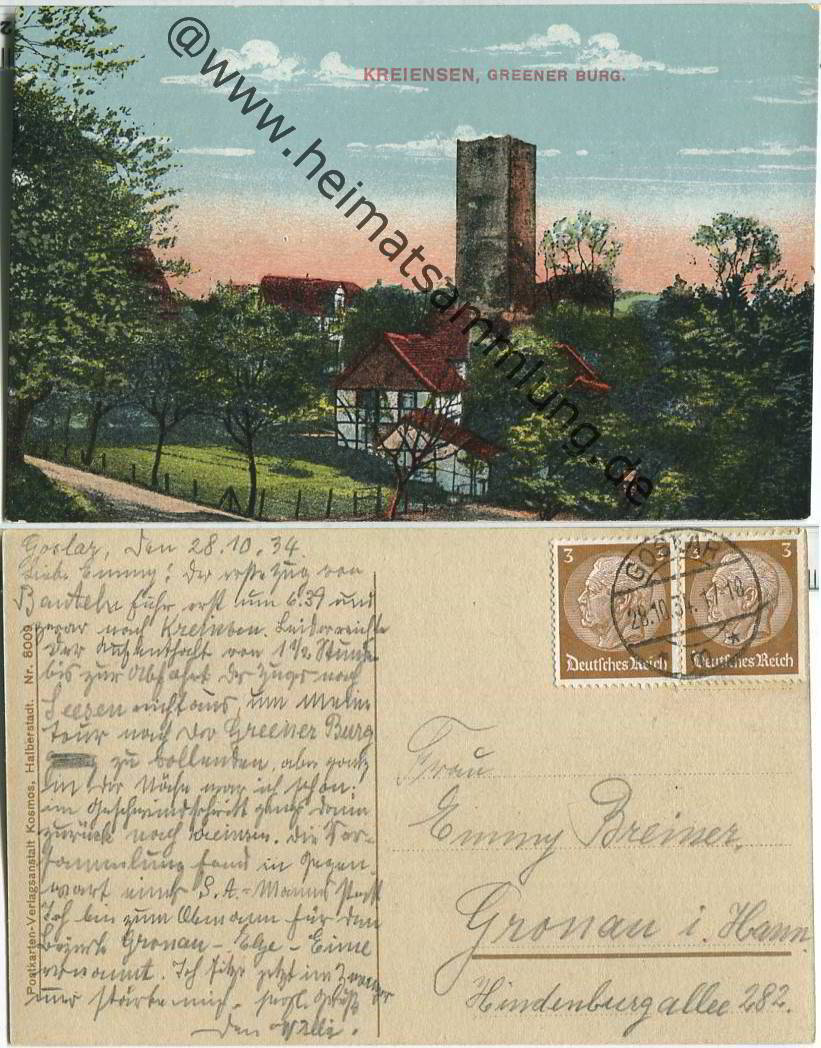 KREIENSEN, GREENER BURG.
@www.heimatsammlung.de
Goslar, den 28.10.34.
Liebe Emmy! Der erste Zug von
Banteln fuhr erst um 6.39 und
zwar nach Kreiensen. Leider reichte
der Aufenthalt von 1 1/2 Stunde
bis zur Abfahrt des Zuges nach
Seesen nicht aus, um meine
tour nach der Greener Burg
zu vollenden, aber ganz
in der Nähe war ich schon;
im Geschwindschritt gings dann
zurück nach Kreiensen. Die Ver-
sammlung fand in Gegen-
wart eines S.A.-Manns statt
Ich bin zum Obmann für den
Bezirk Gronau - Elze - Eime
ernannt. Ich sitze jetzt im
und stärke mich. herzl. Grüße
Dein Willi.
Postkarten-Verlagsanstalt Kosmos, Halberstadt. Nr. 8009
3
3
GOSLAR
28.10.34.17-18
Deutsches Reich
Deutsches Reich
Frau
Emmy Breiner,
Gronau i. Hann.
Hindenburgallee 282.